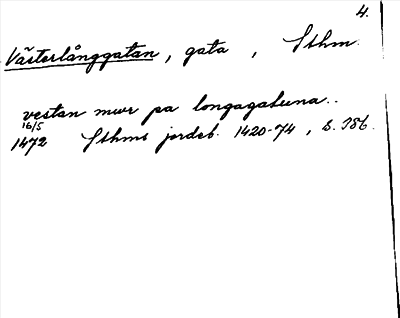 4.
Västerlånggatan, gata, Sthm.
vestan mwr pa longagatuna..
16/5
1472 Sthms jordeb. 1420-74, s. 386.